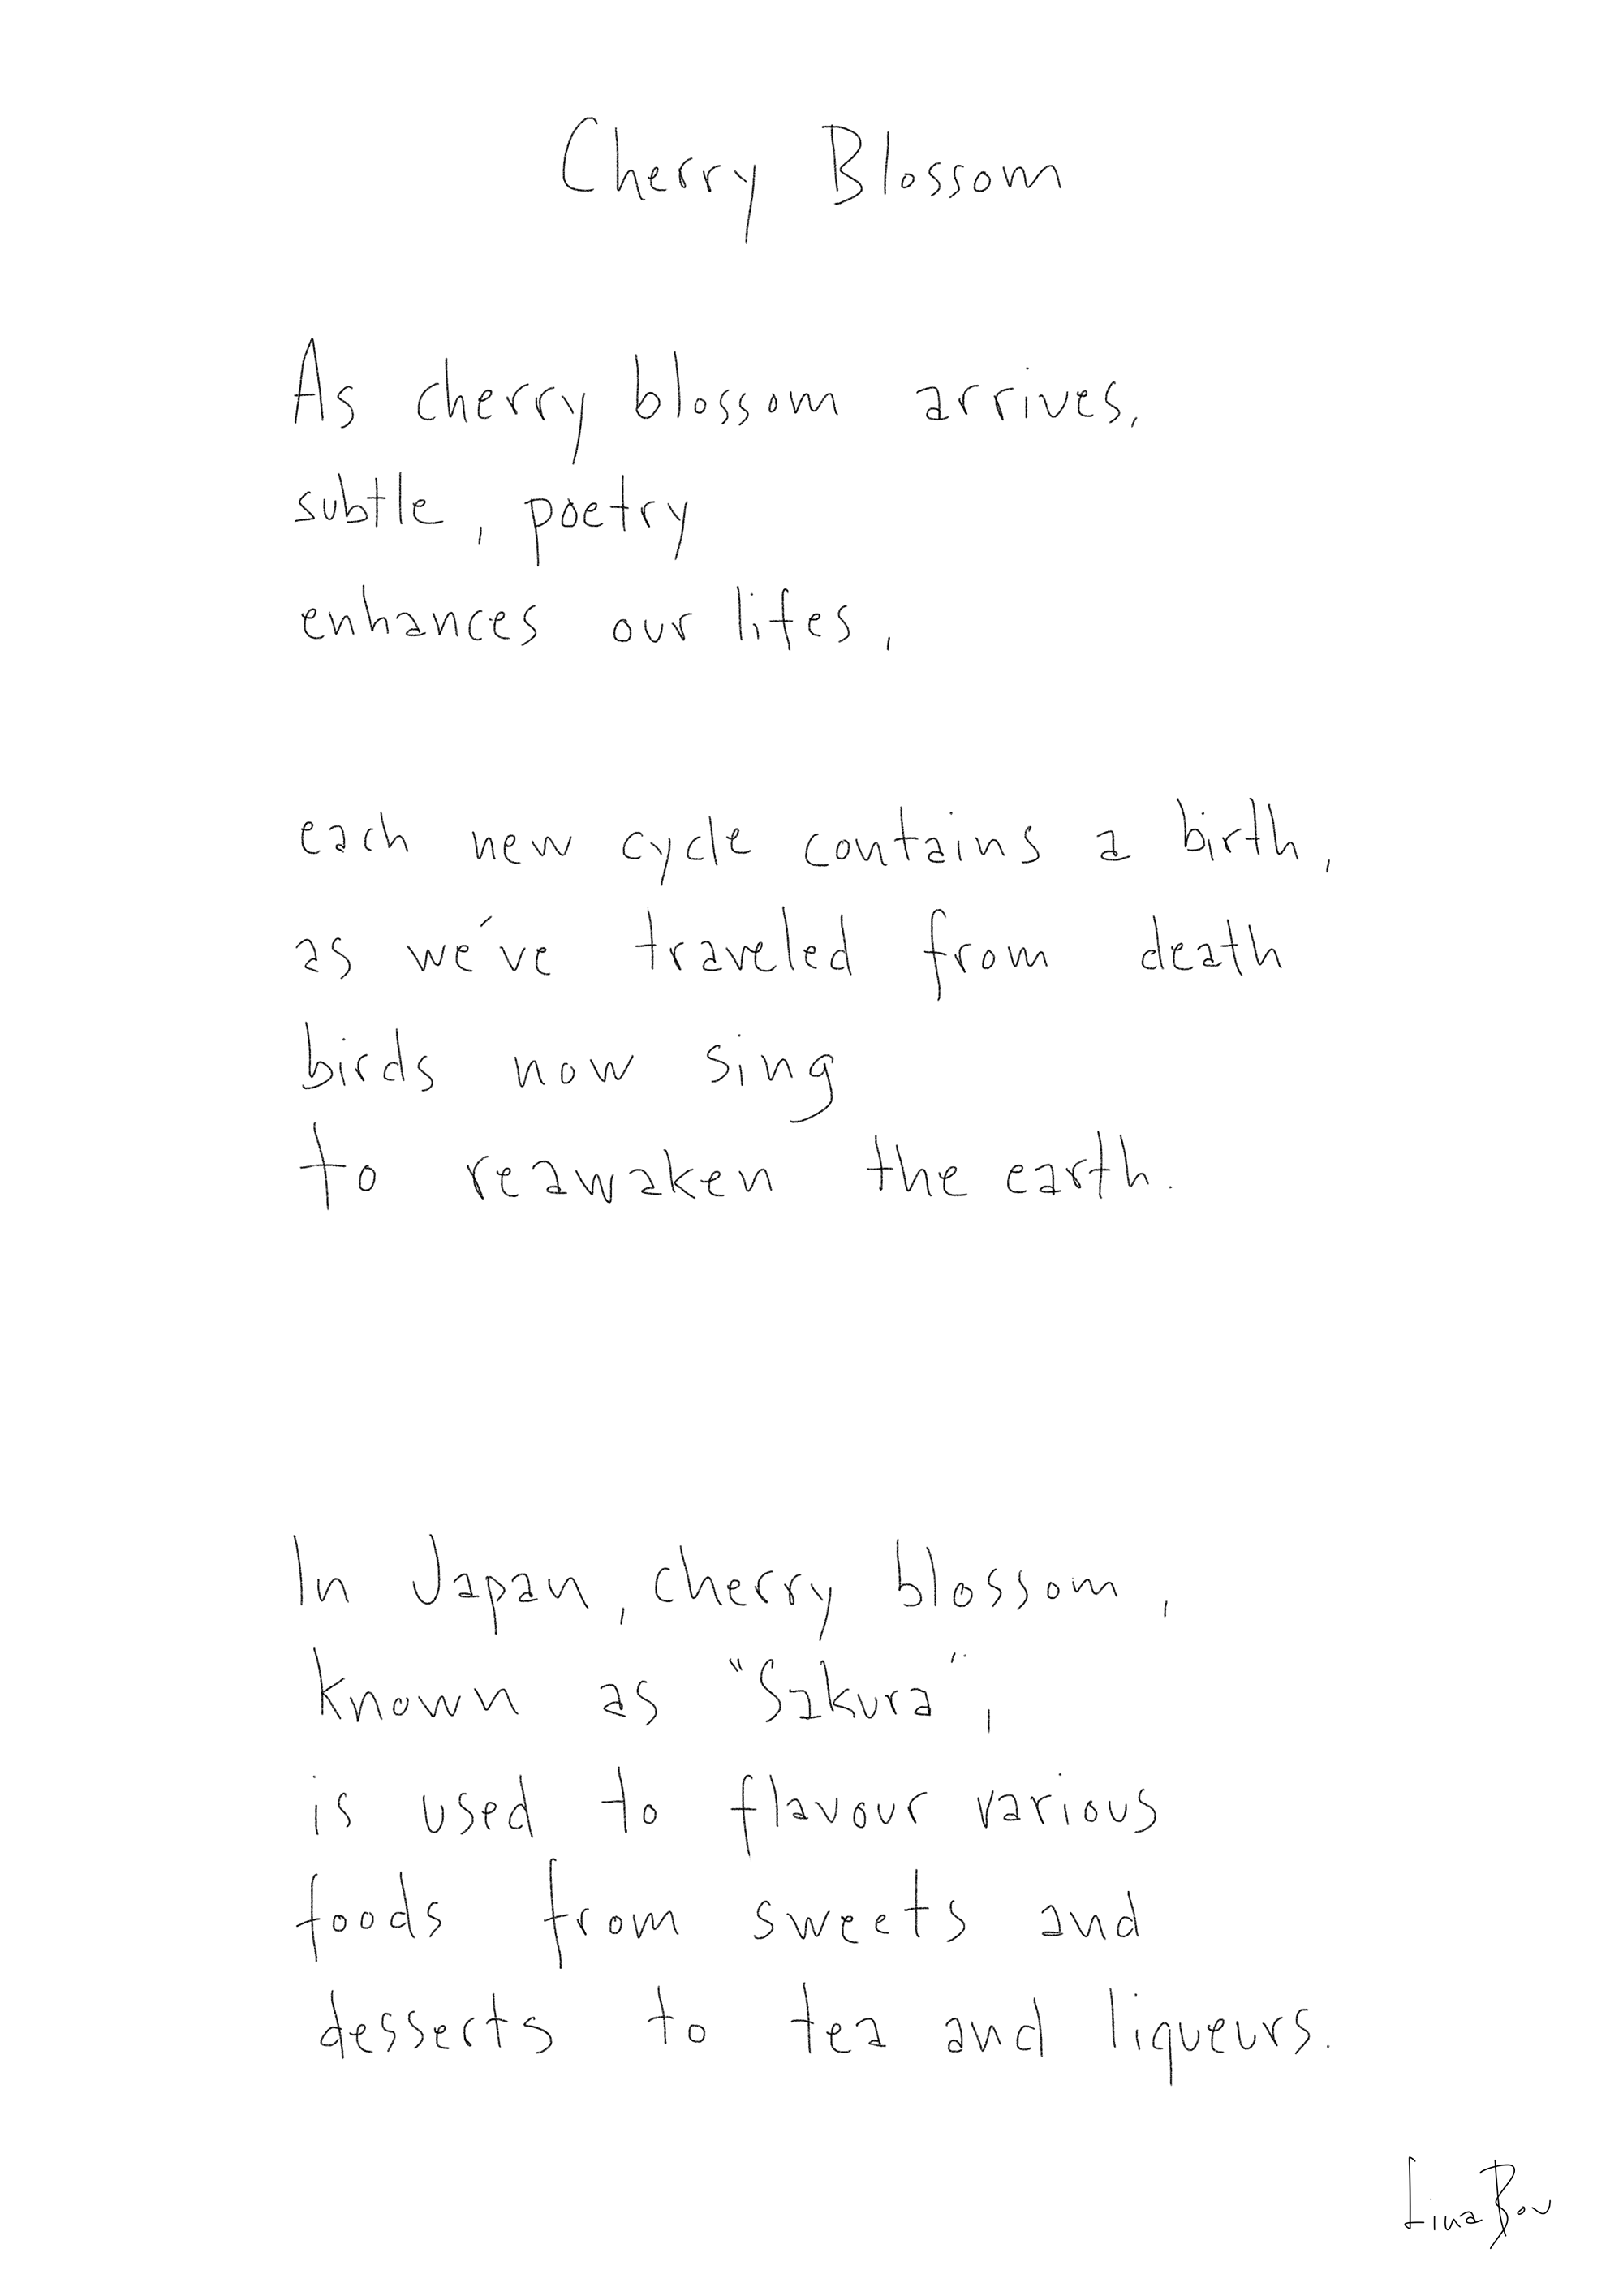 Cherry Blossom
As cherry blossom arrives,
subtle, poetry
enhances our lifes,
each new cycle contains a birth,
as we've traveled from death
birds now sing
to reawaken the earth.
In Japan, cherry blossom,
known as "Sakura",
is used to flavour various
foods from sweets and
desserts to tea and liqueurs.
Lina Bou